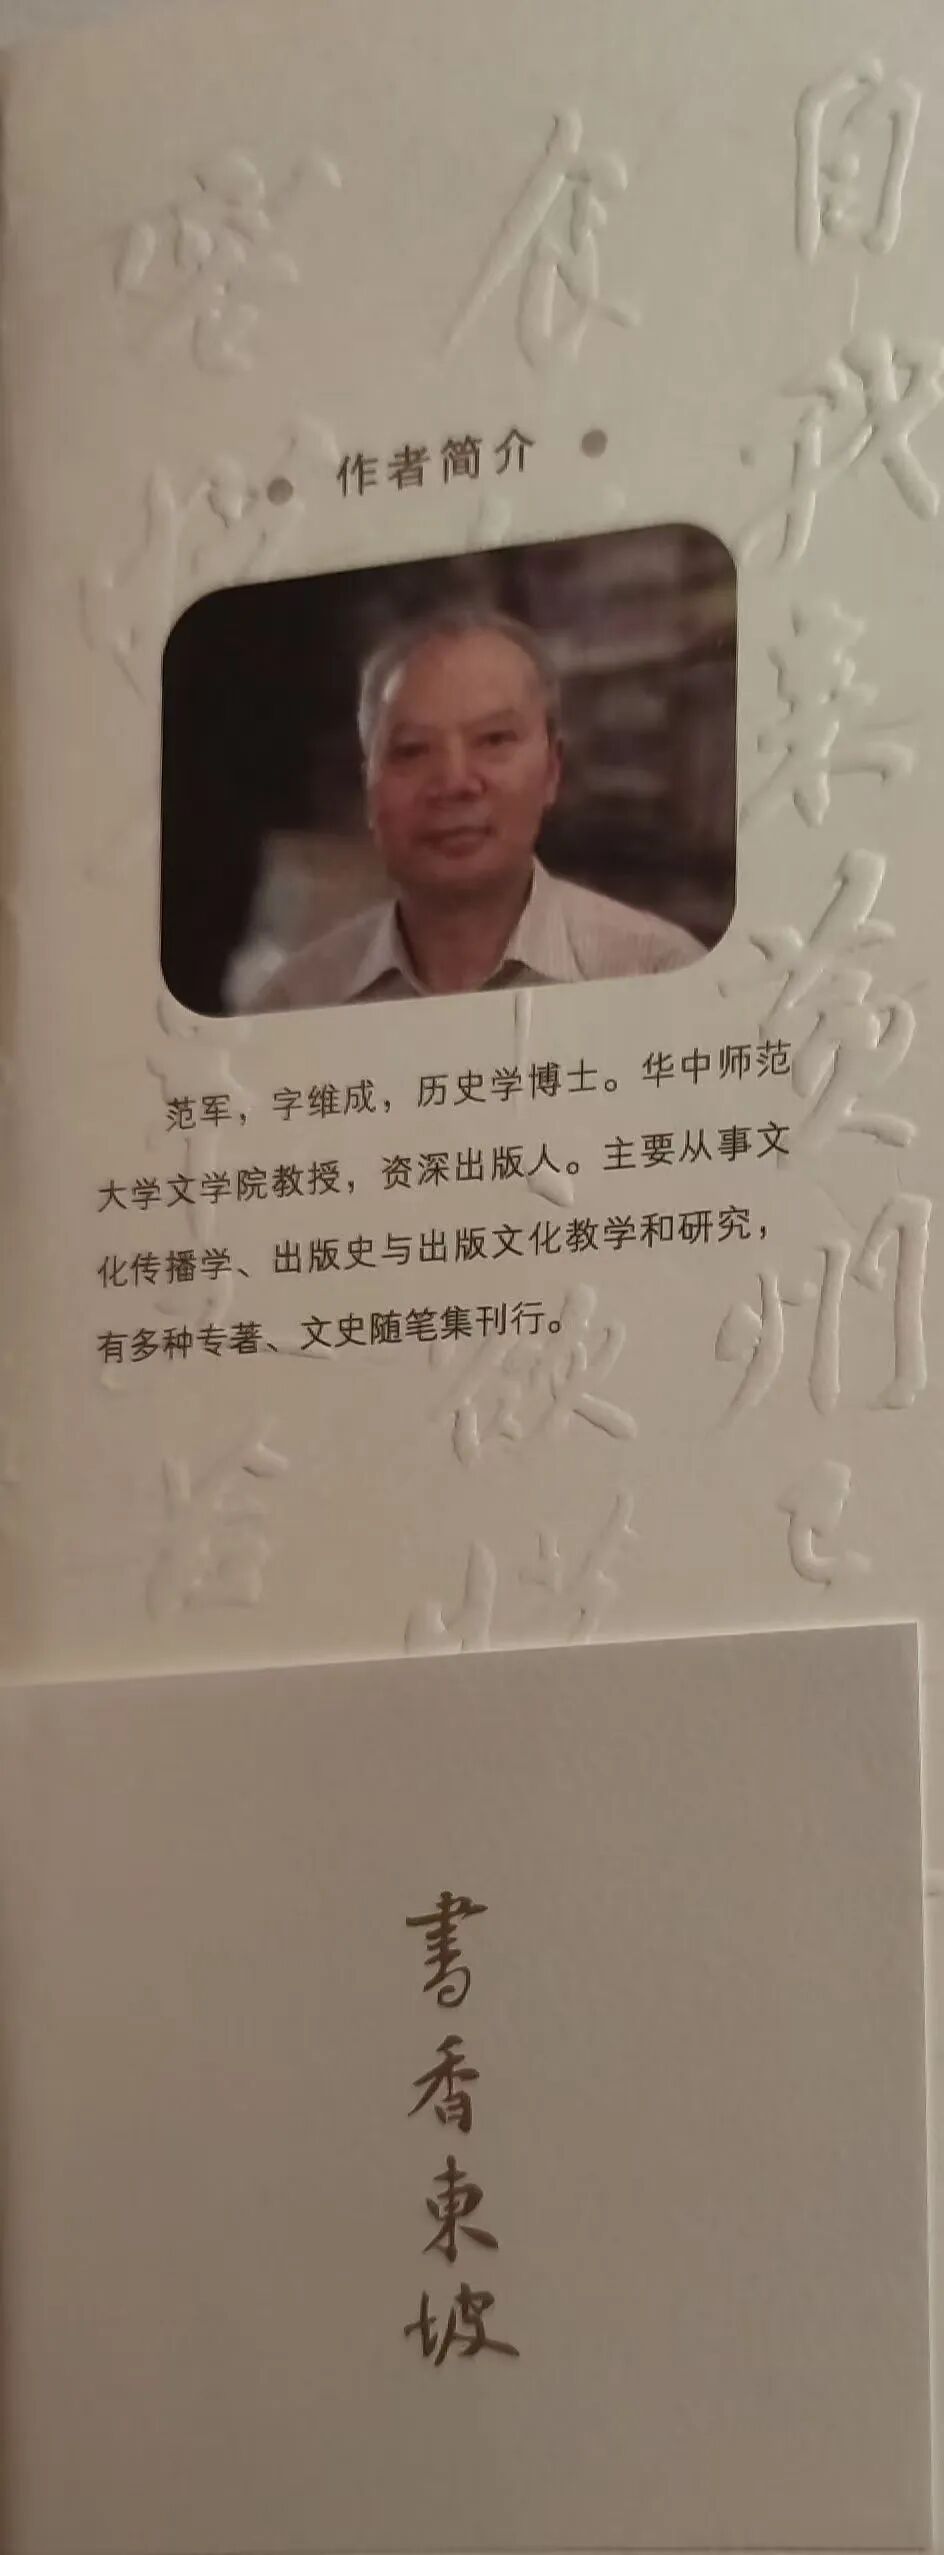 自我来黄州已
食
欲惜
作者简介
范军，字维成，历史学博士。华中师范
大学文学院教授，资深出版人。主要从事文
化传播学、出版史与出版文化教学和研究，
有多种专著、文史随笔集刊行。
書香東坡